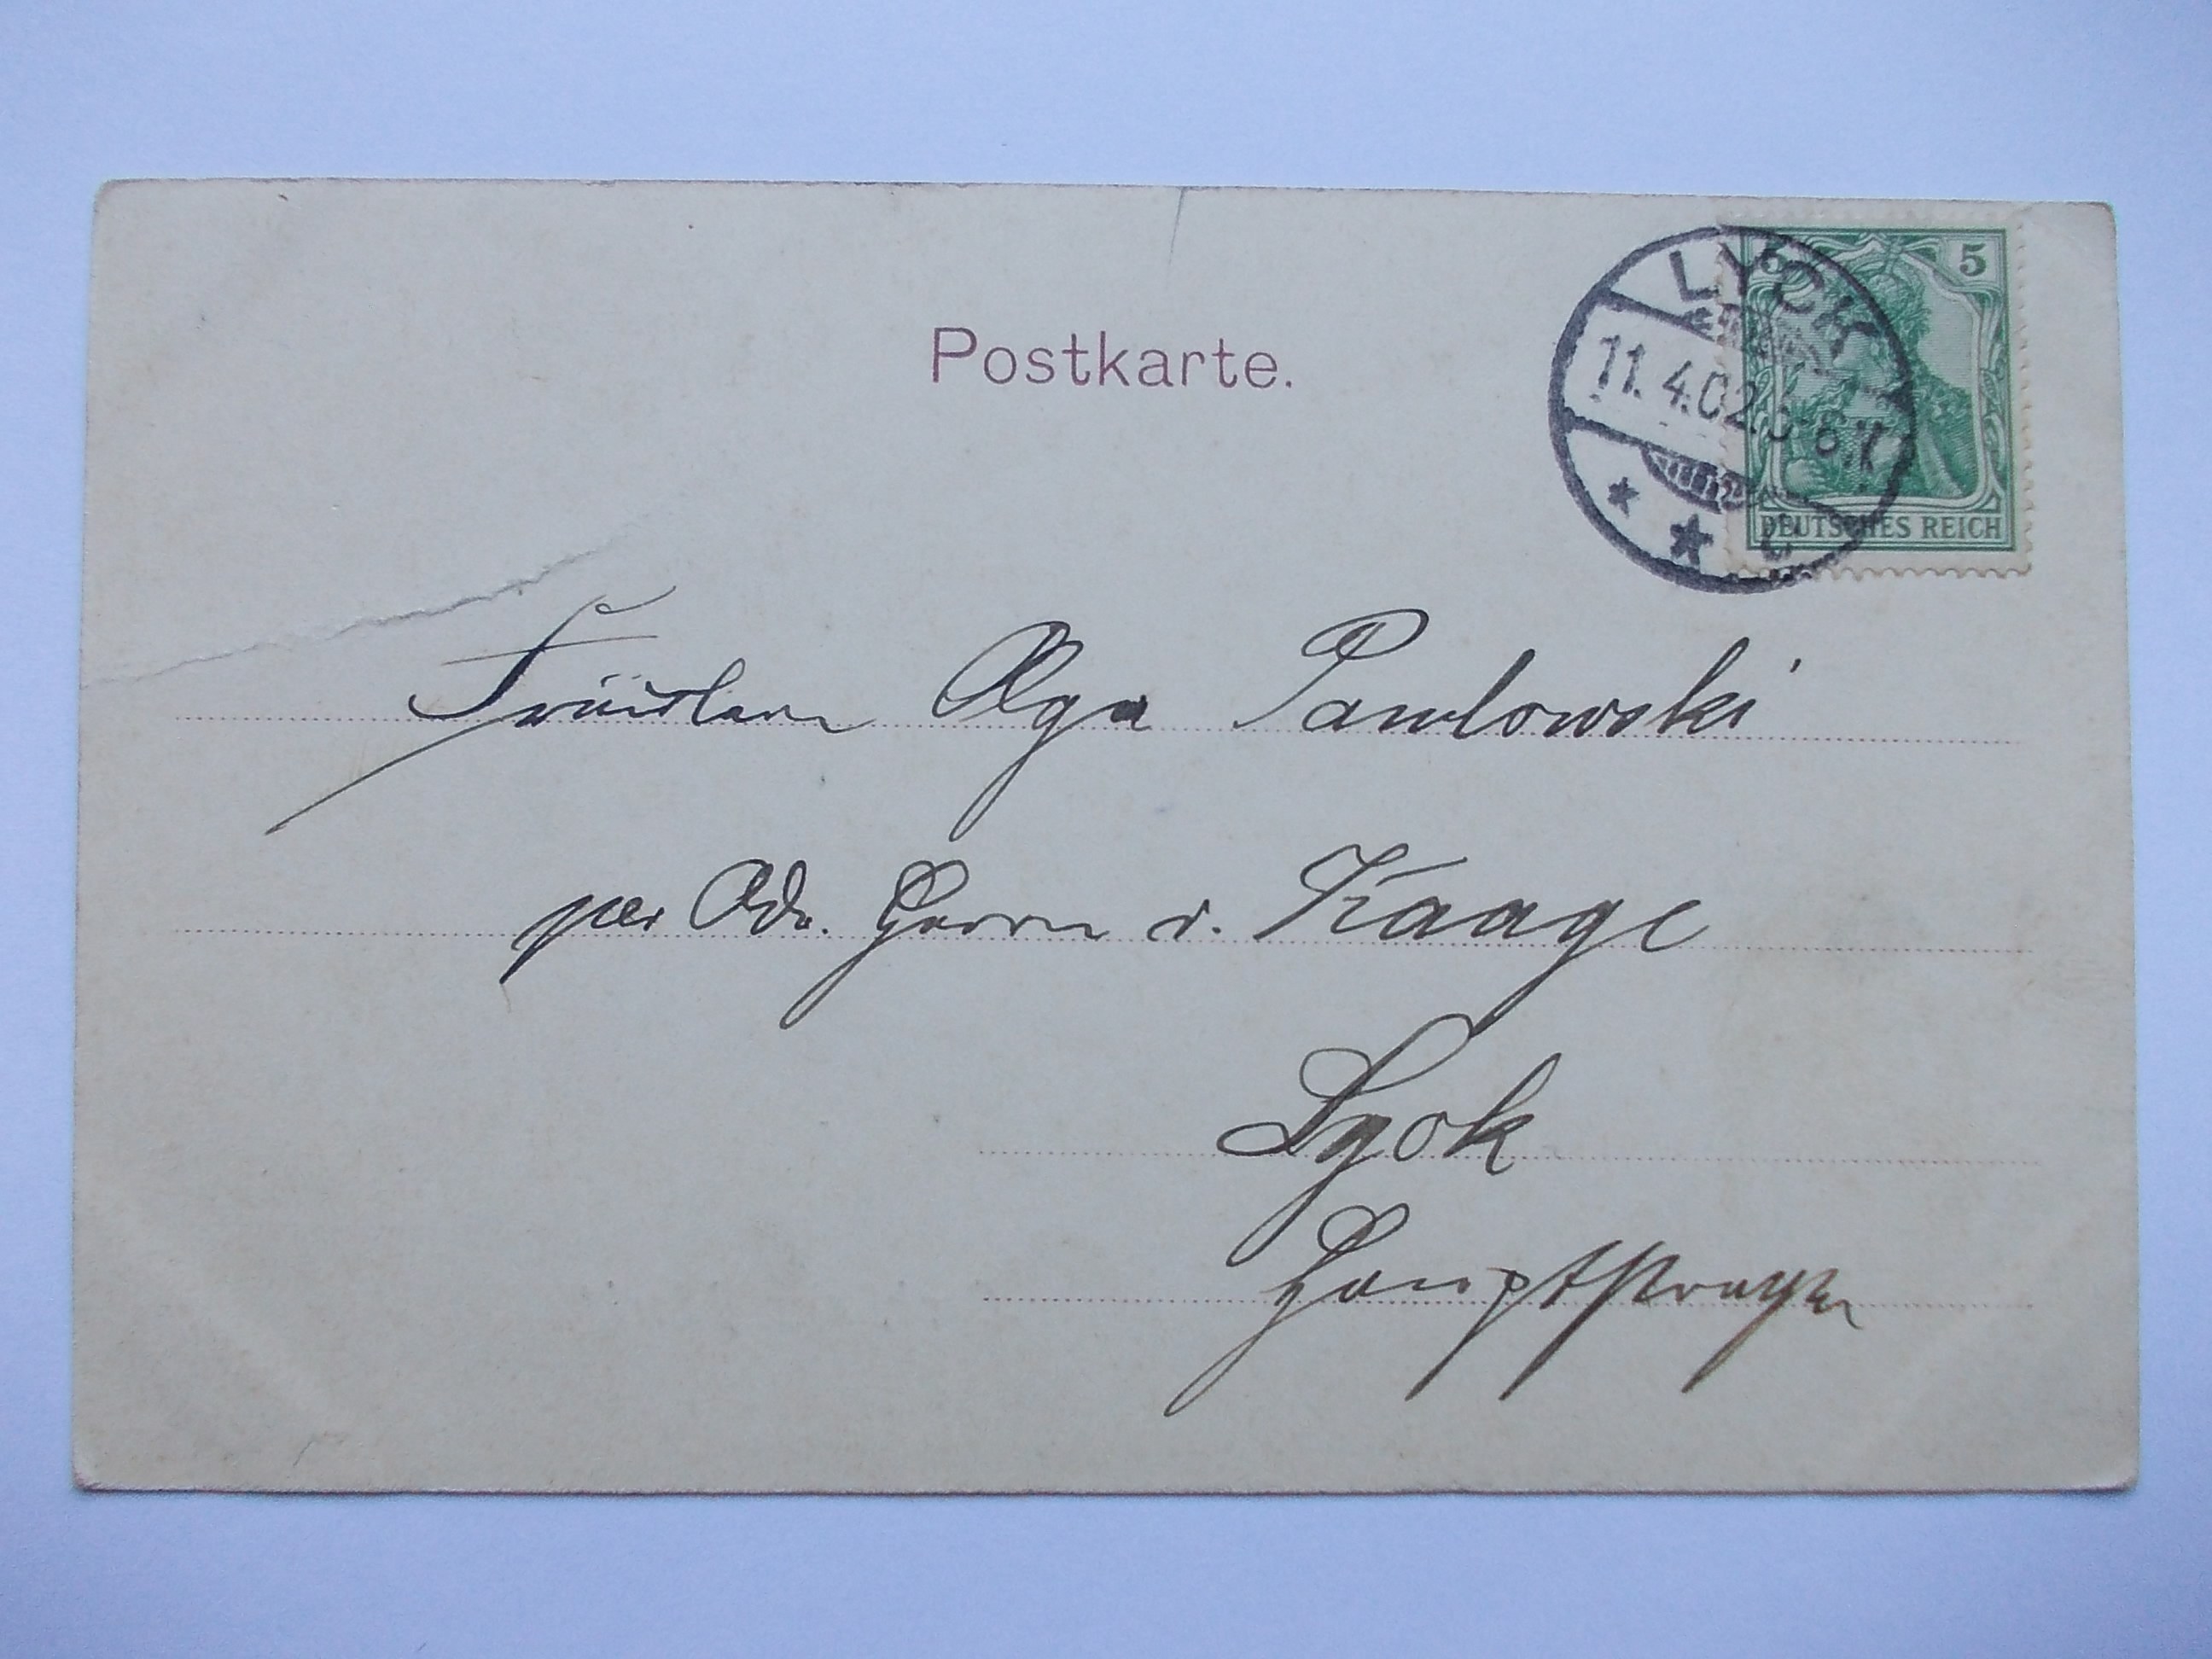 5
LYCK
11.4.02.5-6N.
* * c
DEUTSCHES REICH
Postkarte.
Fräulein Olga Pawlowski
per Adr. Herrn v. Kaage
Lyck
Hauptstraße